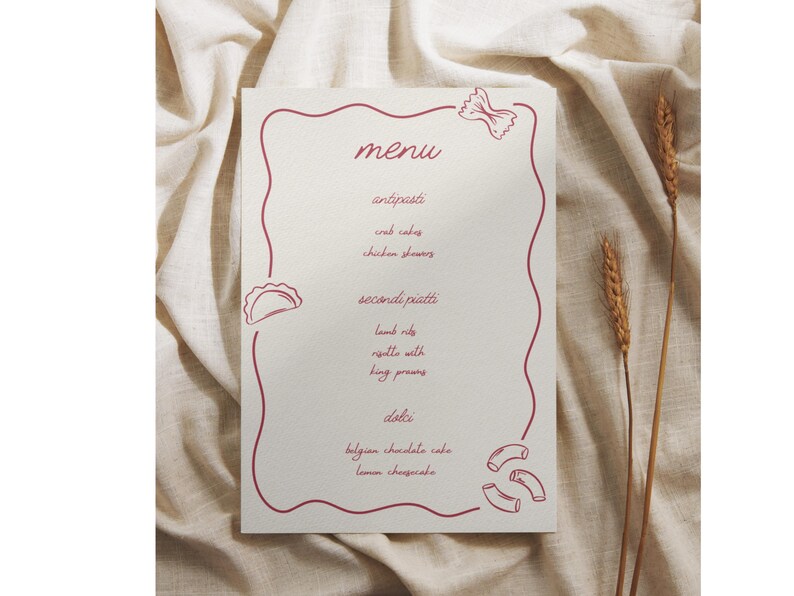 menu
antipasti
crab cakes
chicken skewers
secondi piatti
lamb ribs
risotto with
king prawns
dolci
belgian chocolate cake
lemon cheesecake